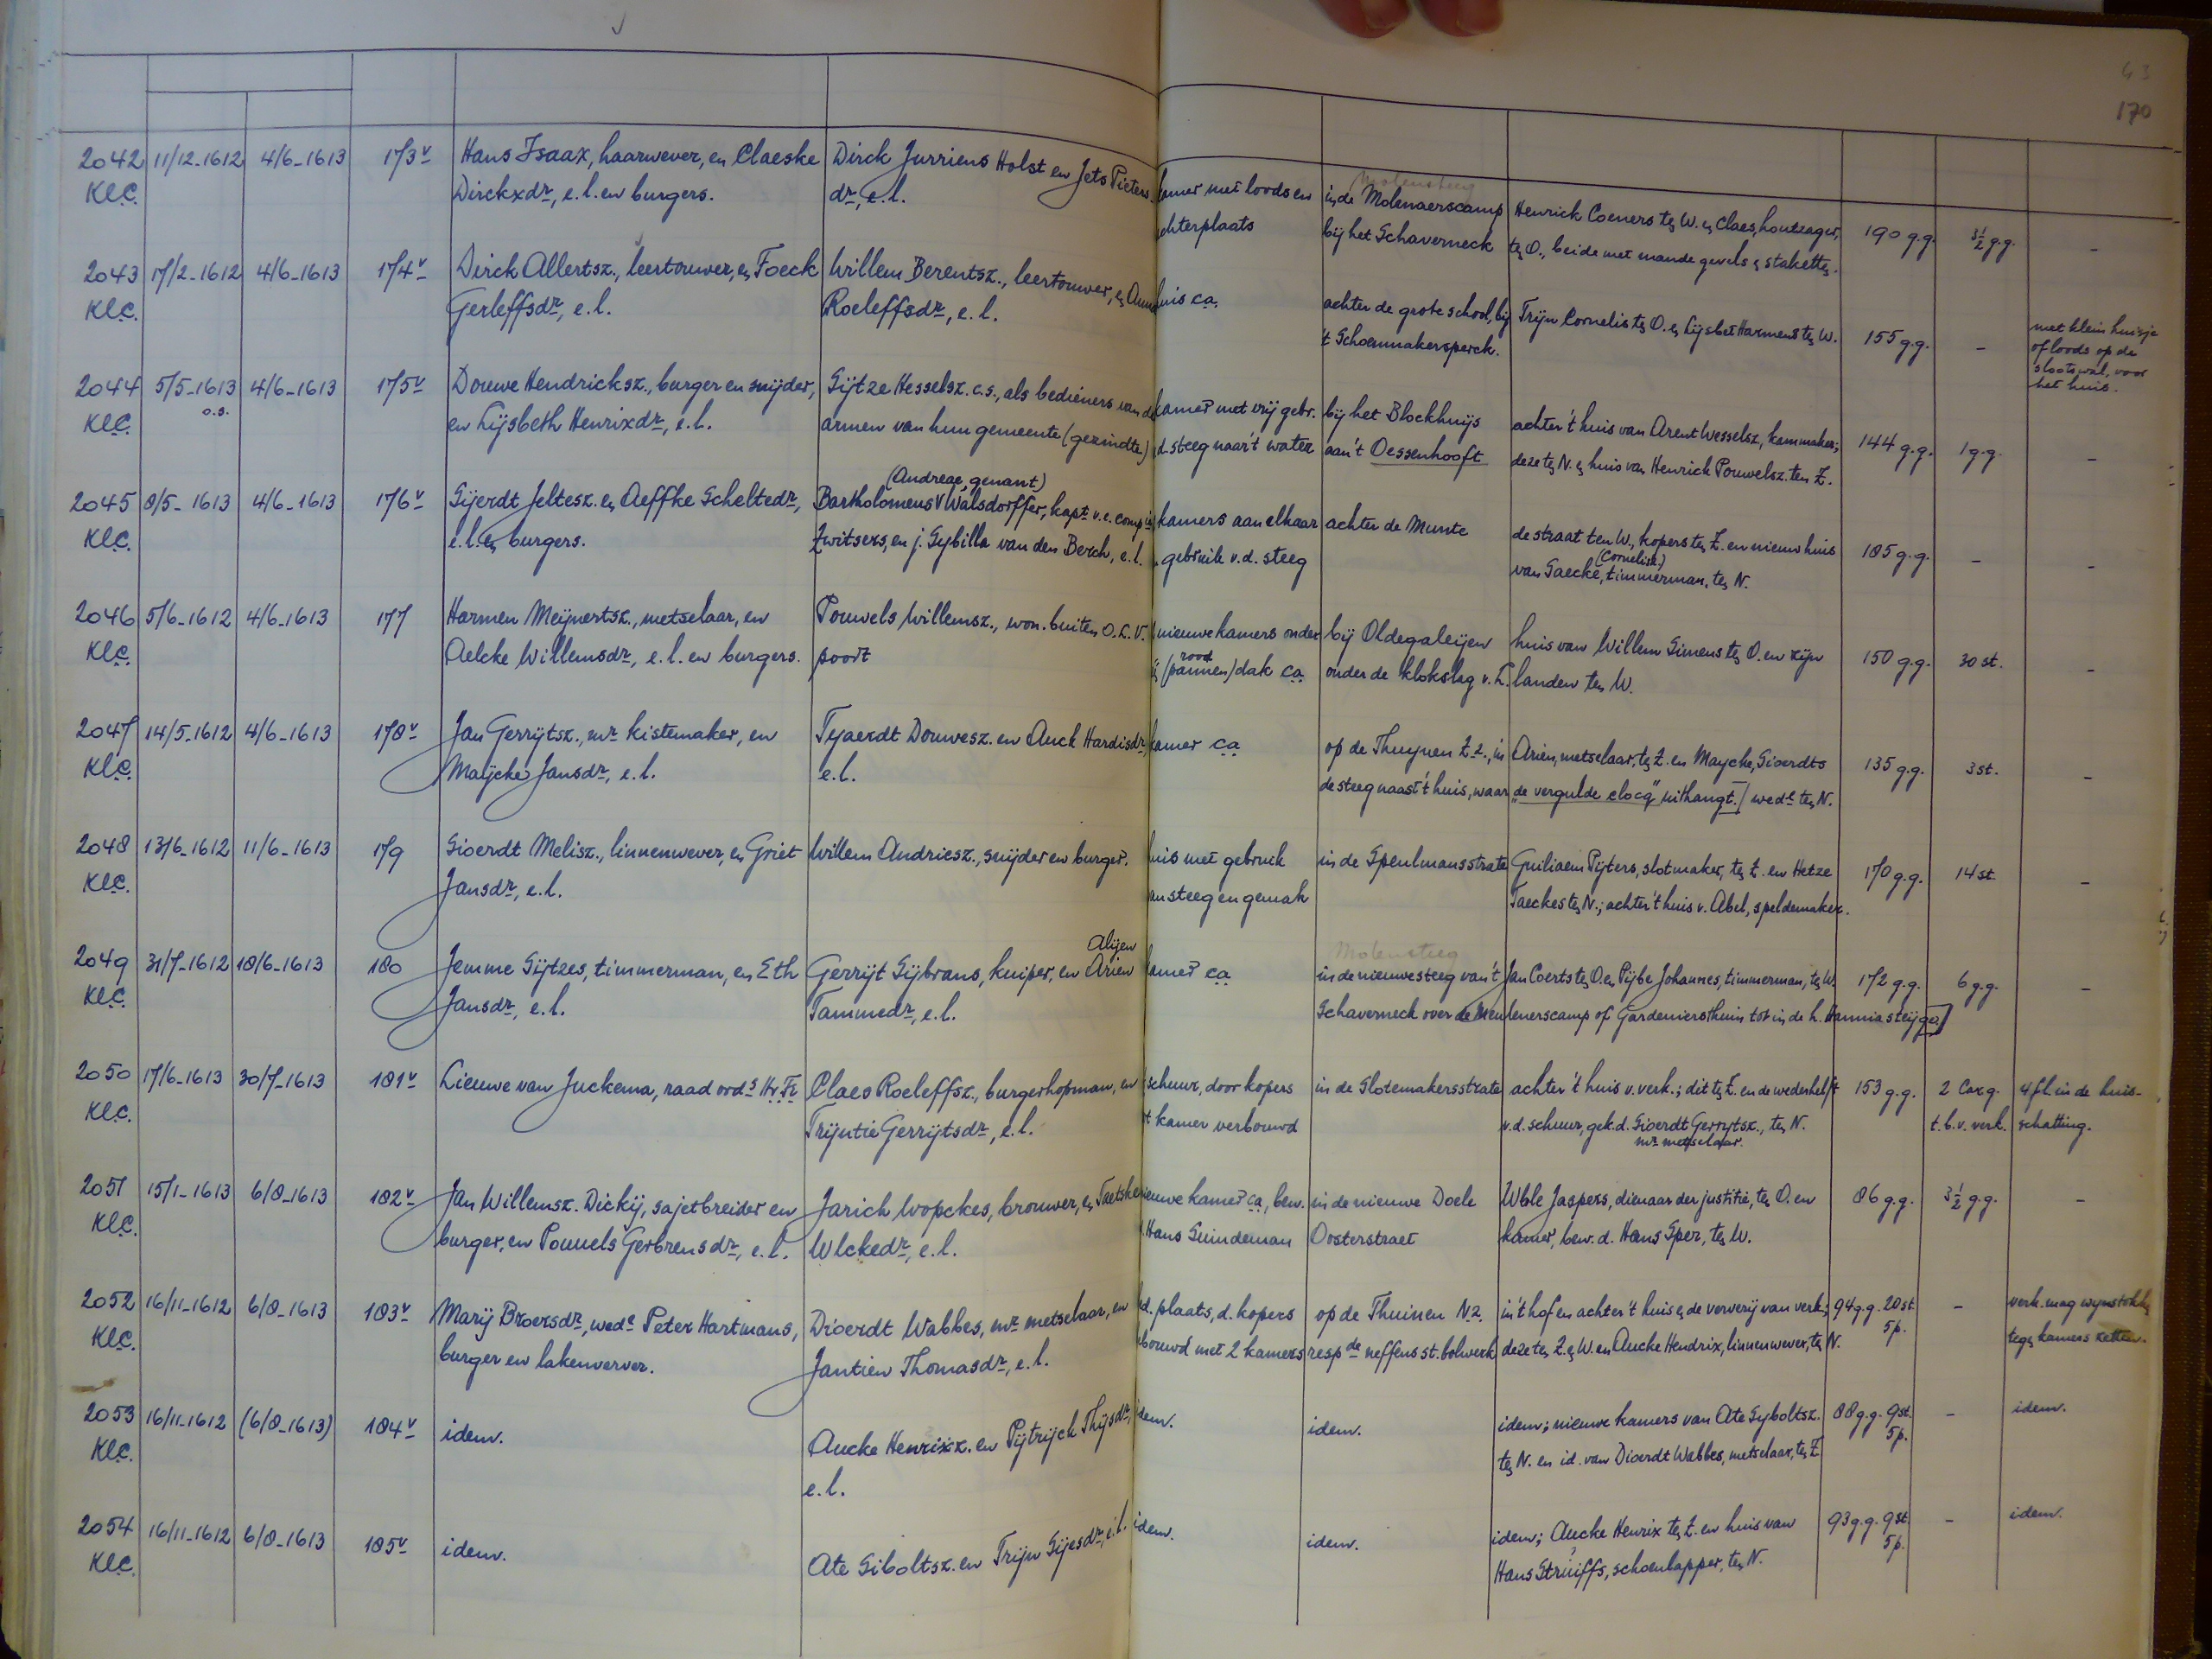 63
170
2042 11/12_1612 4/6_1613 173v Hans Isaax, haarwever, en Claeske Dirck Jurriens Holst en Jets Pieters kamer met loods en in de Molenaerscamp Henrick Coeners ten W. en Claes, houtzager, 190 g.g. 3½ g.g. _
Molensteeg
KLC. Dirckxdr, e.l. en burgers. dr, e.l. achterplaats bij het Schaverneck ten O., beide met mande gevels en staketten.
2043 17/2_1612 4/6_1613 174v Dirck Allertsz., leertouwer, en Foeck Willem Berentsz., leertouwer, en Anna huis ca. achter de grote school, bij Trijn Cornelis ten O. en Lijsbet Harmens ten W. 155 g.g. _ met klein huisje
KLC. Gerleffsdr, e.l. Roeleffsdr, e.l. 't Schoenmakersperck. of loods op de
slootswal, voor
het huis.
2044 5/5_1613 4/6_1613 175v Douwe Hendricksz., burger en snijder, Sijtze Hesselsz. c.s., als bedieners van de kamer met vrij gebr. bij het Blockhuijs achter 't huis van Arent Wesselsz, kammaker; 144 g.g. 1 g.g. _
o.s.
KLC. en Lijsbeth Henrixdr, e.l. armen van hun gemeente (gezindte) d. steeg naar 't water aan 't Oessenhooft deze ten N. en huis van Henrick Pouwelsz. ten Z.
(Andreae, genant)
2045 8/5_1613 4/6_1613 176v Sijerdt Jeltesz. en Aeffke Scheltedr, Bartholomeus Walsdorffer, kapt. v.e. comp. kamers aan elkaar achter de Munte de straat ten W., kopers ten Z. en nieuw huis 185 g.g. _ _
(Cornelisz.)
KLC. e.l. en burgers. Zwitsers, en j. Sybilla van den Berch, e.l. gebruik v.d. steeg van Saecke, timmerman, ten N.
2046 5/6_1612 4/6_1613 177 Harmen Meijnertsz., metselaar, en Pouwels Willemsz., won. buiten O.L.V. nieuwe kamers onder bij Oldegaleijen huis van Willem Simens ten O. en zijn 150 g.g. 30 st. _
rood
KLC. Aelcke Willemsdr, e.l. en burgers. poort (pannen) dak ca. onder de klokslag v. L. landen ten W.
2047 14/5_1612 4/6_1613 178v Jan Gerrijtsz., mr. kistemaker, en Tyaerdt Douwesz. en Auck Hardisdr, kamer ca. op de Thuynen Z.z., in Arien, metselaar, ten Z. en Maycke, Sioerdts 135 g.g. 3 st. _
KLC. Maijcke Jansdr, e.l. e.l. de steeg naast 't huis, waar „de vergulde clocq" uithangt.] wede ten N.
2048 13/6_1612 11/6_1613 179 Sioerdt Melisz., linnenwever, en Griet Willem Andriesz., snijder en burger. huis met gebruik in de Speulmansstrate Guiliaem Pijters, slotmaker, ten Z. en Hetze 170 g.g. 14 st. _
KLC. Jansdr, e.l. van steeg en gemak Taeckes ten N.; achter 't huis v. Abel, speldemaker.
Alijen Molensteeg
2049 31/7_1612 18/6_1613 180 Jemme Sijtzes, timmerman, en Eth Gerrijt Sijbrans, kuiper, en Arien kamer ca. in de nieuwe steeg van 't Jan Coerts ten O. en Pijbe Johannes, timmerman, ten W. 172 g.g. 6 g.g. _
KLC. Jansdr, e.l. Tammedr, e.l. Schaverneck over de Meulenerscamp of Gardeniersthuin tot in de h. Aannia steijger]
2050 17/6_1613 30/7_1613 181v Lieuwe van Juckema, raad ords Hv.Fr. Claes Roeleffsz., burgerhopman, en schuur, door kopers in de Slotemakersstrate achter 't huis v. verk.; dit ten Z. en de wederhelft 153 g.g. 2 Car.g. 4 fl. in de huis-
KLC. Trijntie Gerrijtsdr, e.l. t kamer verbouwd v.d. schuur, gek. d. Sioerdt Gerrytsz., ten N. t.b.v. verk. schatting.
mr metselaar.
2051 15/1_1613 6/8_1613 182v Jan Willemsz. Dickij, sajetbreider en Jarich Wopckes, brouwer, en Taetske nieuwe kamer ca., bew. in de nieuwe Doele Wble Jaspers, dienaar der justitie, ten O. en 86 g.g. 3½ g.g. _
KLC. burger, en Pouwels Gerbrensdr, e.l. Wlckedr, e.l. Hans Suindeman Oosterstraet kamer, bew. d. Hans Sper, ten W.
2052 16/11_1612 6/8_1613 183v Marij Broersdr, wede Peter Hartmans, Dioerdt Wabbes, mr metselaar, en d. plaats, d. kopers op de Thuinen N.z. in 't hof en achter 't huis en de ververij van verk.; 94 g.g. 20 st. _ verk. mag wijnstokken
5 p.
KLC. burger en lakenverver. Jantien Thomasdr, e.l. bebouwd met 2 kamers respde neffens st. bolwerk deze ten Z. en W. en Aucke Hendrix, linnenwever, ten N. tegen kamers zetten.
2053 16/11_1612 (6/8_1613) 184v idem. Aucke Henrixz. en Pijtrijck Thijsdr, idem. idem. idem; nieuwe kamers van Ate Syboltsz. 88 g.g. 9 st. _ idem.
5 p.
KLC. e.l. ten N. en id. van Dioerdt Wabbes, metselaar, ten Z.
2054 16/11_1612 6/8_1613 185v idem. Ate Siboltsz. en Trijn Sijesdr, e.l. idem. idem. idem; Aucke Henrix ten Z. en huis van 93 g.g. 9 st. _ idem.
5 p.
KLC. Hans Struiffs, schoenlapper, ten N.